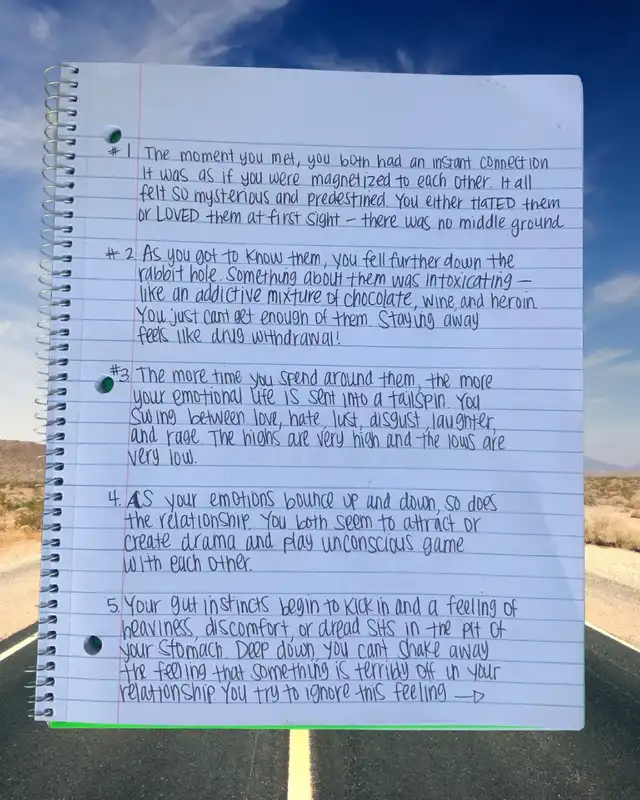 #1 The moment you met, you both had an instant connection
It was as if you were magnetized to each other. It all
felt SO mysterious and predestined. You either HATED them
or LOVED them at first sight – there was no middle ground
#2. As you got to know them, you fell further down the
rabbit hole. Something about them was intoxicating –
like an addictive mixture of chocolate, wine, and heroin.
You just cant get enough of them. Staying away
feels like drug withdrawal!
#3. The more time you spend around them, the more
your emotional life is sent into a tailspin. You
Swing between love, hate, lust, disgust, laughter,
and rage. The highs are very high and the lows are
very low.
4. AS your emotions bounce up and down, so does
the relationship. You both seem to attract or
create drama and play unconscious game
with each other.
5. Your gut instincts begin to kick in and a feeling of
heaviness, discomfort, or dread sits in the pit of
your stomach. Deep down, you cant shake away
the feeling that something is terribly off in your
relationship You try to ignore this feeling →